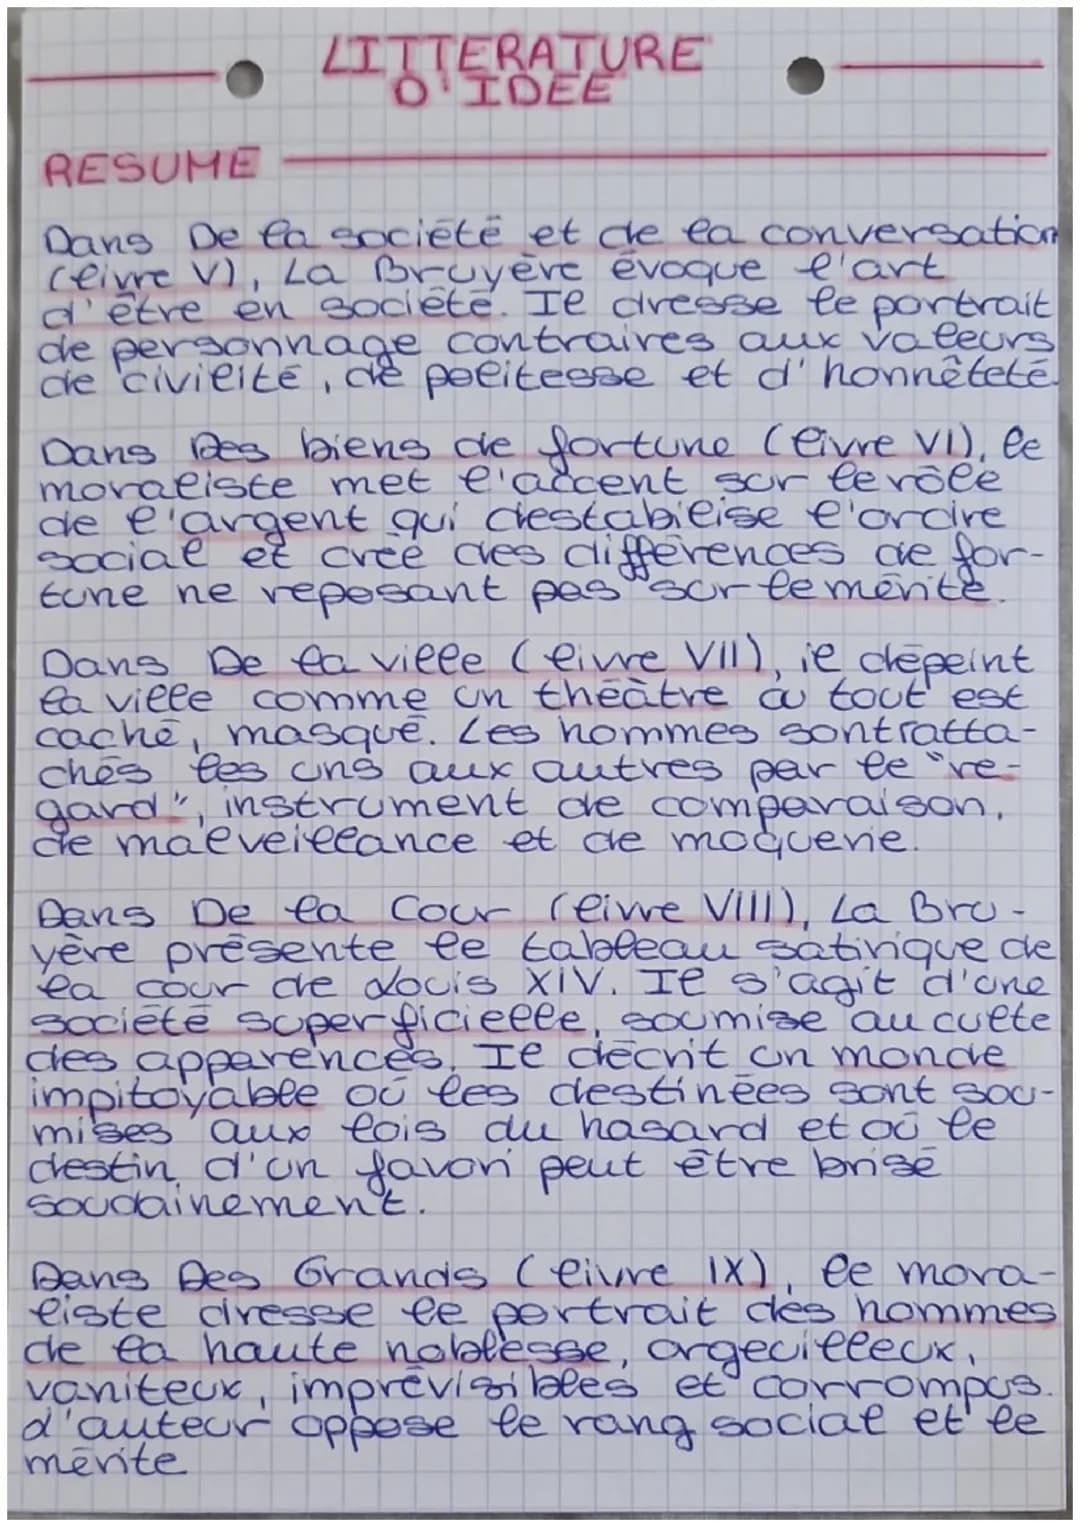 LITTERATURE
D'IDEE
RESUME
Dans De la société et de la conversation
(livre V), La Bruyère évoque l'art
d'être en société. Il dresse le portrait
de personnage contraires aux valeurs
de civilité, de politesse et d'honnêteté.
Dans Des biens de fortune (livre VI), le
moraliste met l'accent sur le rôle
de l'argent qui destabilise l'ordre
social et crée des différences de for-
tune ne reposant pas sur le mérite.
Dans De la ville (livre VII), il dépeint
la ville comme un théâtre où tout est
caché, masqué. Les hommes sont ratta-
chés les uns aux autres par le "re-
gard", instrument de comparaison,
de malveillance et de moquerie.
Dans De la Cour (livre VIII), La Bru-
yère présente le tableau satirique de
la cour de Louis XIV. Il s'agit d'une
société superficielle, soumise au culte
des apparences. Il décrit un monde
impitoyable où les destinées sont sou-
mises aux lois du hasard et où le
destin d'un favori peut être brisé
soudainement.
Dans Des Grands (livre IX), le mora-
liste dresse le portrait des hommes
de la haute noblesse, orgeuilleux,
vaniteux, imprévisibles et corrompus.
L'auteur oppose le rang social et le
mérite